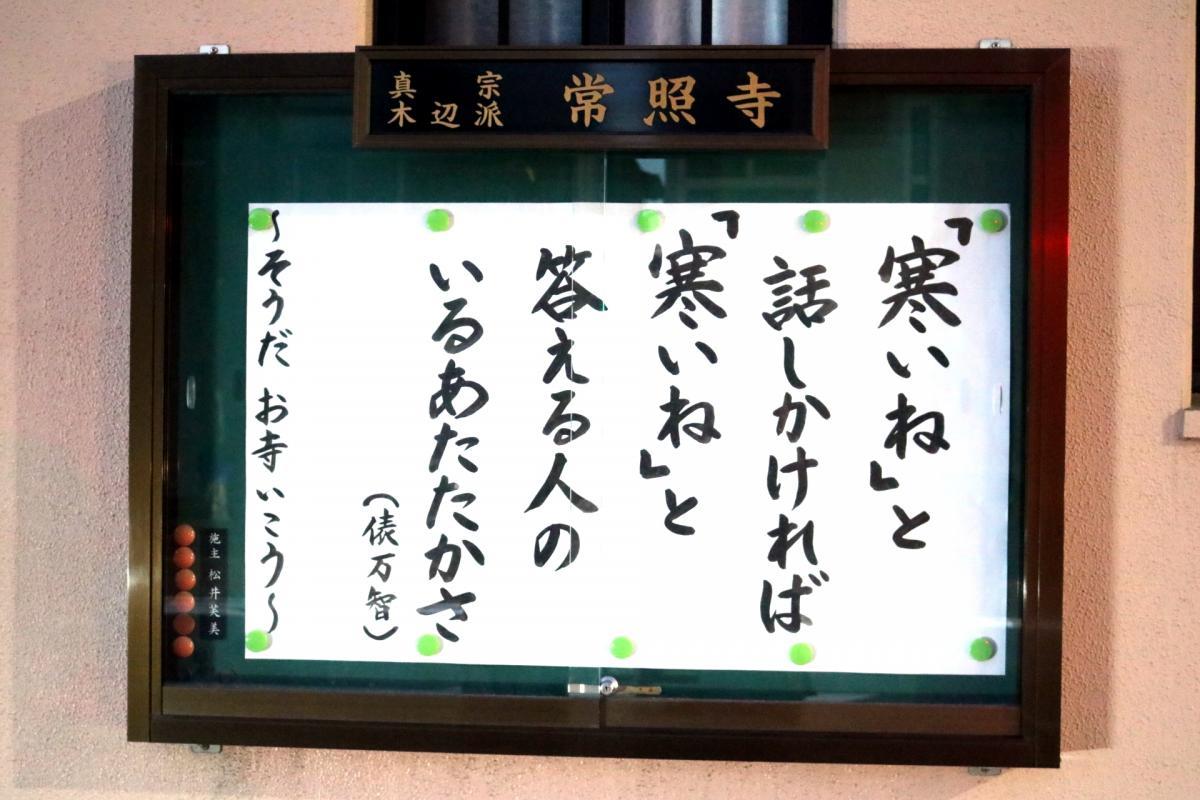 真宗
木辺派
常照寺
「寒いね」と
話しかければ
「寒いね」と
答える人の
いるあたたかさ
(俵万智)
〜そうだ お寺いこう〜
施主 松井芙美